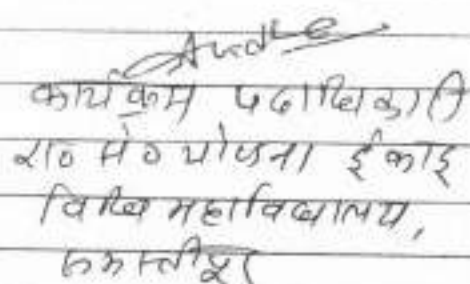 कार्यक्रम पदाधिकारी
रा० से० योजना ईकाई
विधि महाविद्यालय,
समस्तीपुर